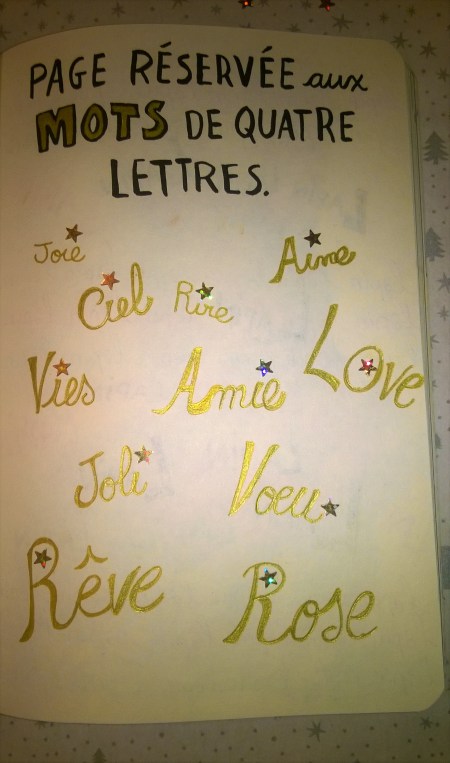 PAGE RÉSERVÉE aux
MOTS DE QUATRE
LETTRES.
Joie
Aime
Ciel
Rire
Love
Vies
Amie
Joli
Voeu
Rêve
Rose